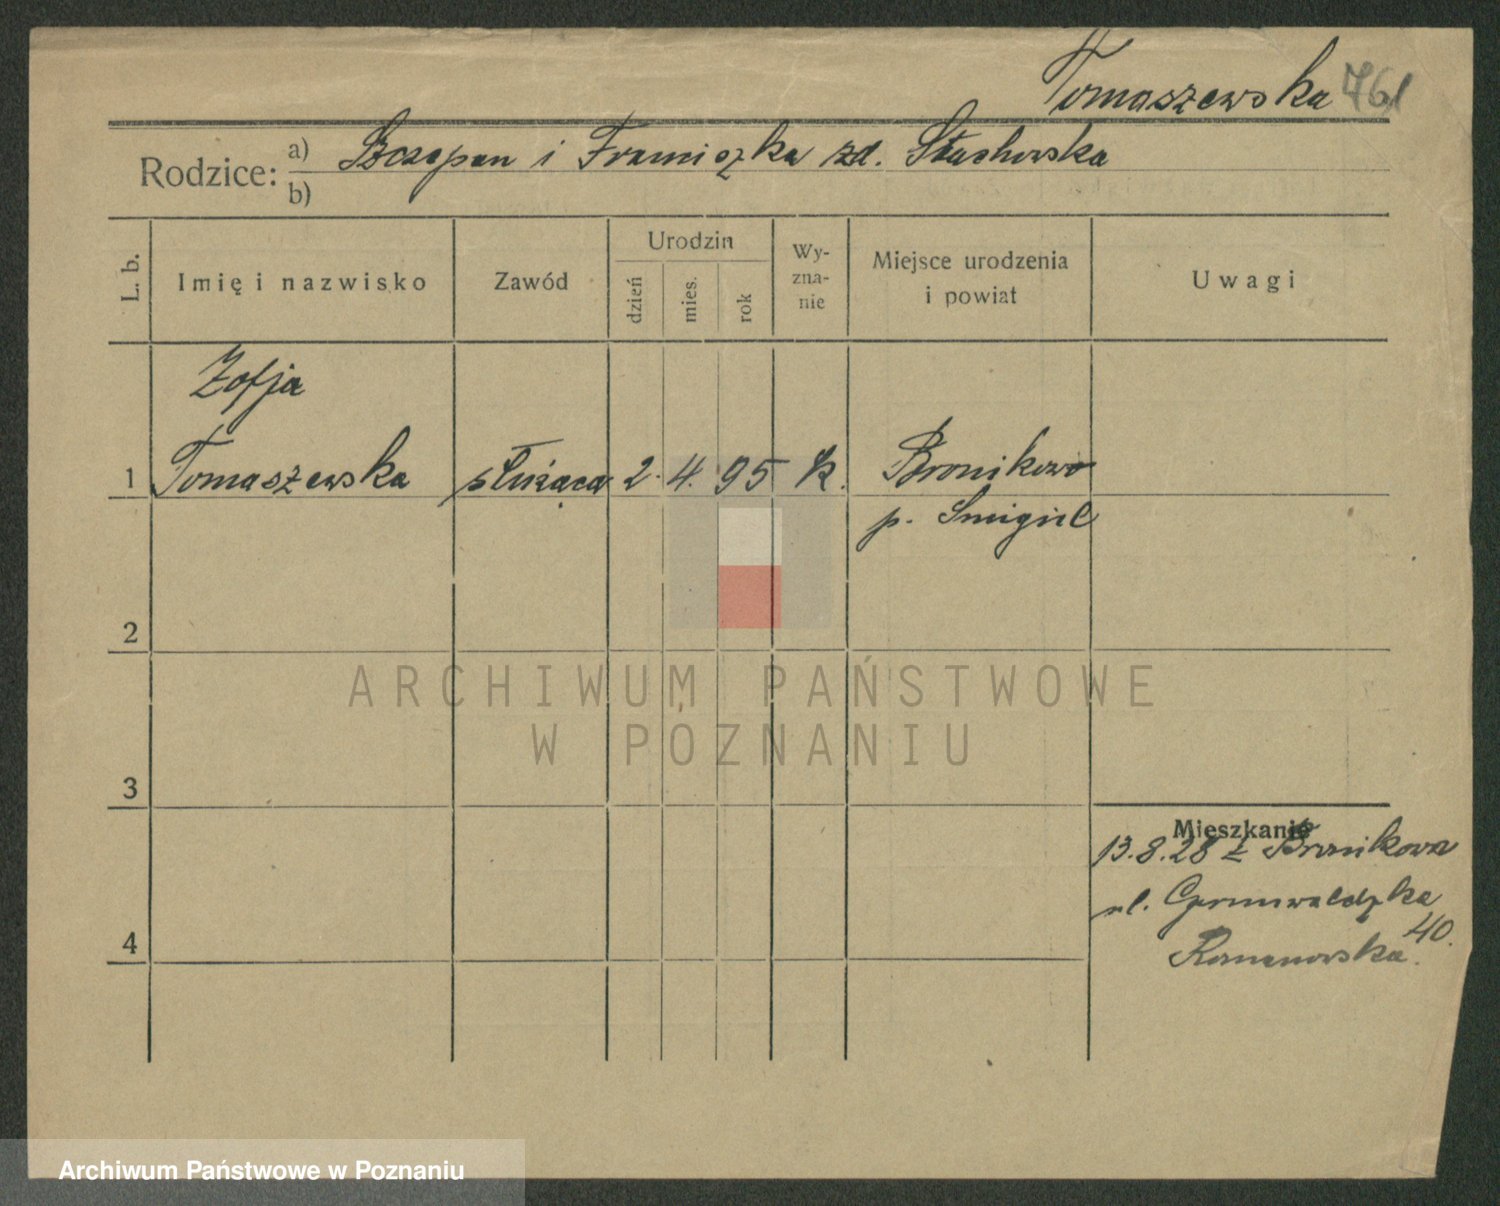 Tomaszewska 761
Rodzice: a) Szczepan i Franciszka zd. Stachowska
b)
L. b. Imię i nazwisko Zawód Urodzin dzień mies. rok Wy-zna-nie Miejsce urodzenia i powiat Uwagi
Zofja
1 Tomaszewska służąca 2. 4. 95 k. Bronikowo
p. Śmigiel
2
ARCHIWUM PAŃSTWOWE
W POZNANIU
3
Mieszkanie
13.8.28 z Bronikowa
ul. Grunwaldzka
40.
4
Romanowska.
Archiwum Państwowe w Poznaniu